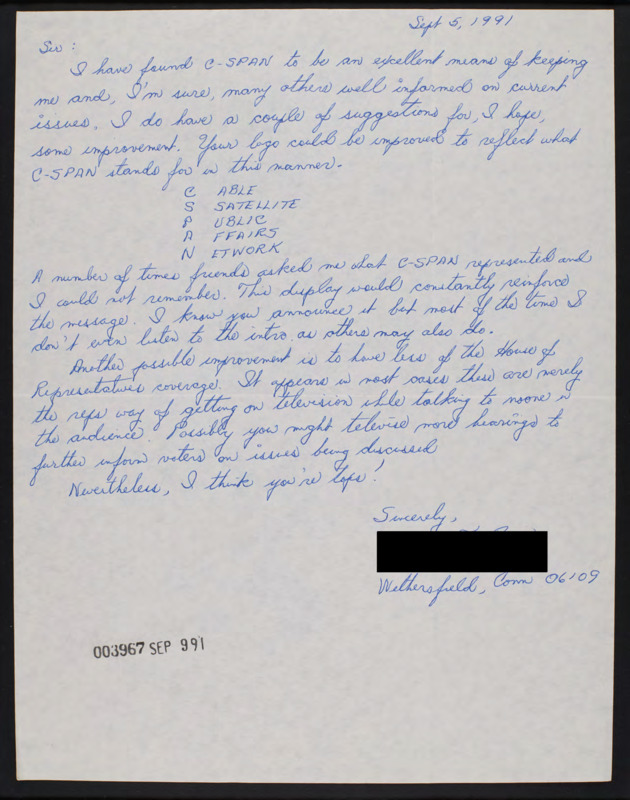 Sept 5, 1991
Sir:
I have found C-SPAN to be an excellent means of keeping
me and, I'm sure, many others well informed on current
issues. I do have a couple of suggestions for, I hope,
some improvement. Your logo could be improved to reflect what
C-SPAN stands for in this manner.
C ABLE
S SATELLITE
P UBLIC
A FFAIRS
N ETWORK
A number of times friends asked me what C-SPAN represented and
I could not remember. This display would constantly reinforce
the message. I know you announce it but most of the time I
don't even listen to the intro. as others may also do.
Another possible improvement is to have less of the House of
Representatives coverage. It appears in most cases these are merely
the reps way of getting on television while talking to noone in
the audience. Possibly you might televise more hearings to
further inform voters on issues being discussed
Nevertheless, I think you're tops!
Sincerely,
Wethersfield, Conn 06109
003967 SEP 991